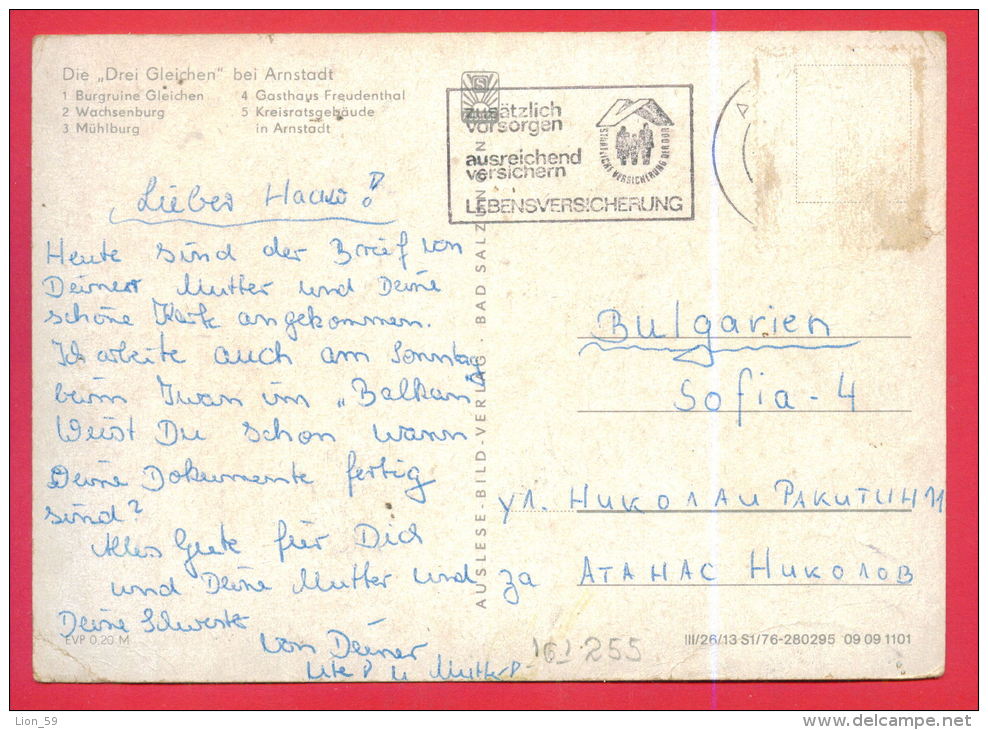 Die „Drei Gleichen" bei Arnstadt
1 Burgruine Gleichen
2 Wachsenburg
3 Mühlburg
4 Gasthaus Freudenthal
5 Kreisratsgebäude
in Arnstadt
zusätzlich
vorsorgen
ausreichend
versichern
LEBENSVERSICHERUNG
STAATLICHE VERSICHERUNG DER DDR
Lieber
Heute sind der Brief von
Deiner Mutter und Deine
schöne Karte angekommen.
Ich arbeite auch am Sonntag
beim Iwan im „Balkan"
Weist Du schon wann
Deine Dokumente fertig
sind?
Alles Gute für Dich
und Deine Mutter und
Deine Schwester
von Deiner
Ute u Mutter
EVP 0,20 M
AUSLESE-BILD-VERLAG · BAD SALZUNGEN
Bulgarien
Sofia - 4
ул. НИКОЛАИ РАКИТИН 11
за АТАНАС НИКОЛОВ
III/26/13 S1/76-280295 09 09 1101
255
Lion_59
www.delcampe.net